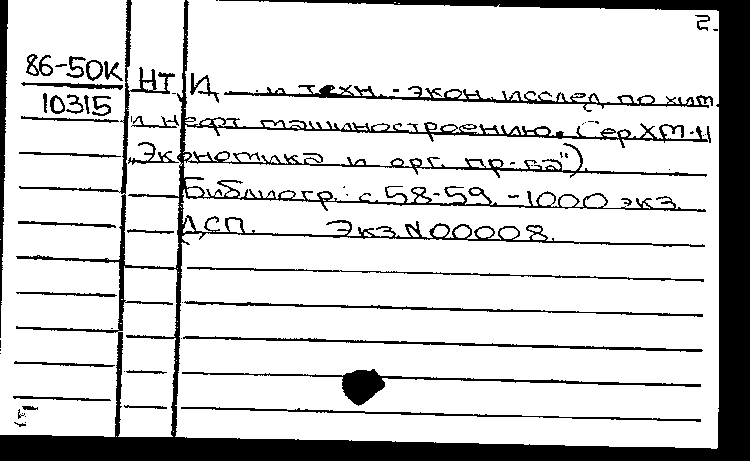 2.
86-50К НТИ и техн.-экон. исслед. по хим.
10315
и нефт. машиностроению. Сер. ХМ-11
"Экономика и орг. пр-ва").
Библиогр.: с. 58-59. -1000 экз.
ДСП. Экз. N00008.